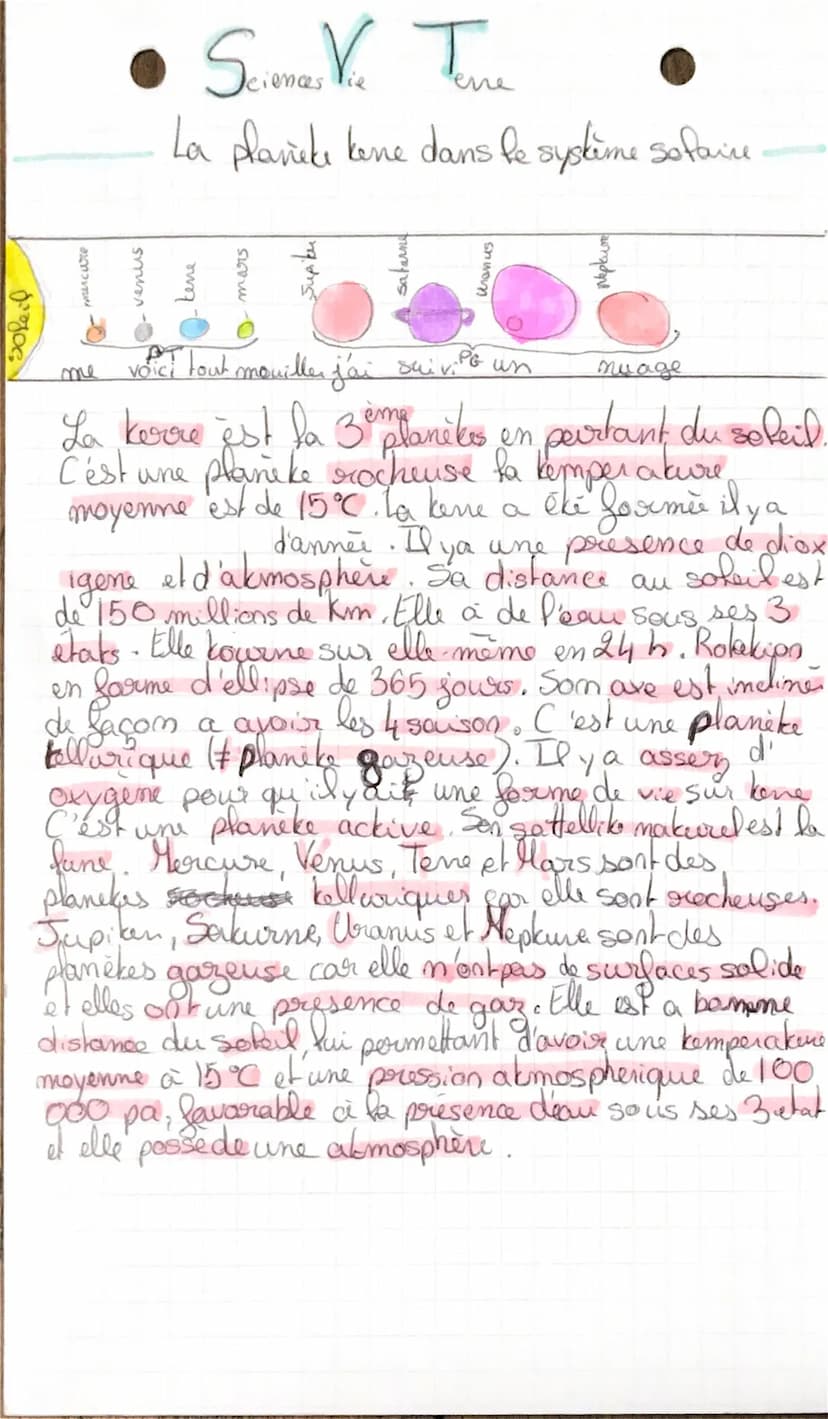 Sciences Vie Terre
La planète terre dans le système solaire
soleil
mercure
venus
terre
mars
Jupiter
saturne
uranus
Neptune
PT
PG
me voici tout mouiller j'ai suivi un nuage
La terre est la 3ème planètes en partant du soleil.
C'est une planète rocheuse la temperature
moyenne est de 15°C. La terre a été formée il y a
d'année. Il y a une présence de diox
igene et d'atmosphère. Sa distance au soleil est
de 150 millions de km. Elle à de l'eau sous ses 3
états. Elle tourne sur elle-même en 24 h. Rotation
en forme d'ellipse de 365 jours. Son axe est incliné
de façon a avoir les 4 saison. C'est une planète
tellurique (≠ planète gazeuse). Il y a assez d'
oxygène pour qu'il y ait une forme de vie sur terre
C'est une planète active. Son sattellite naturel est la
lune. Mercure, Vénus, Terre et Mars sont des
planètes rocheuse telluriques car elle sont rocheuses.
Jupiter, Saturne, Uranus et Neptune sont des
planètes gazeuse car elle n'ont pas de surfaces solide
et elles ont une présence de gaz. Elle est a bonnne
distance du soleil, lui permettant d'avoir une temperature
moyenne à 15°C et une pression atmospherique de 100
000 pa, favorable à la présence d'eau sous ses 3 etat
et elle possède une atmosphère.